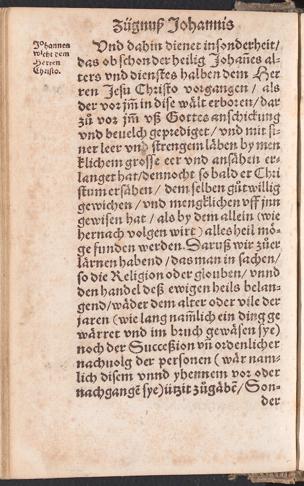 Zügnuß Johannis
Johannes
wicht dem
Herren
Christo.
Vnd dahin dienet insonderheit/
das ob schon der heilig Johañes al-
ters vnd dienstes halben dem Her
ren Jesu Christo vorgangen / als
der vor jm̃ in dise wält erboren/dar
zů vor jm̃ vß Gottes anschickung
vnd beuelch geprediget/ vnd mit si-
ner leer vnd strengem läben by men
klichem grosse eer vnd ansähen er-
langet hat/dennocht so bald er Chri
stum ersähen/ dem selben gůtwillig
gewichen / vnd mengklichen vff jnn
gewisen hat / als by dem allein (wie
hernach volgen wirt) alles heil mö-
ge funden werden. Daruß wir zůer
lärnen habend / das man in sachen/
so die Religion oder glouben/ vnnd
den handel deß ewigen heils belan-
gend/wäder dem alter oder vile der
jaren (wie lang nam̃lich ein ding ge
wärret vnd im bruch gewäsen sye)
noch der Succeßion vñ ordenlicher
nachuolg der personen ( wär nam-
lich disem vnnd yhennem vor oder
nachgangẽ sye) ützit zůgäbẽ/ Son-
der